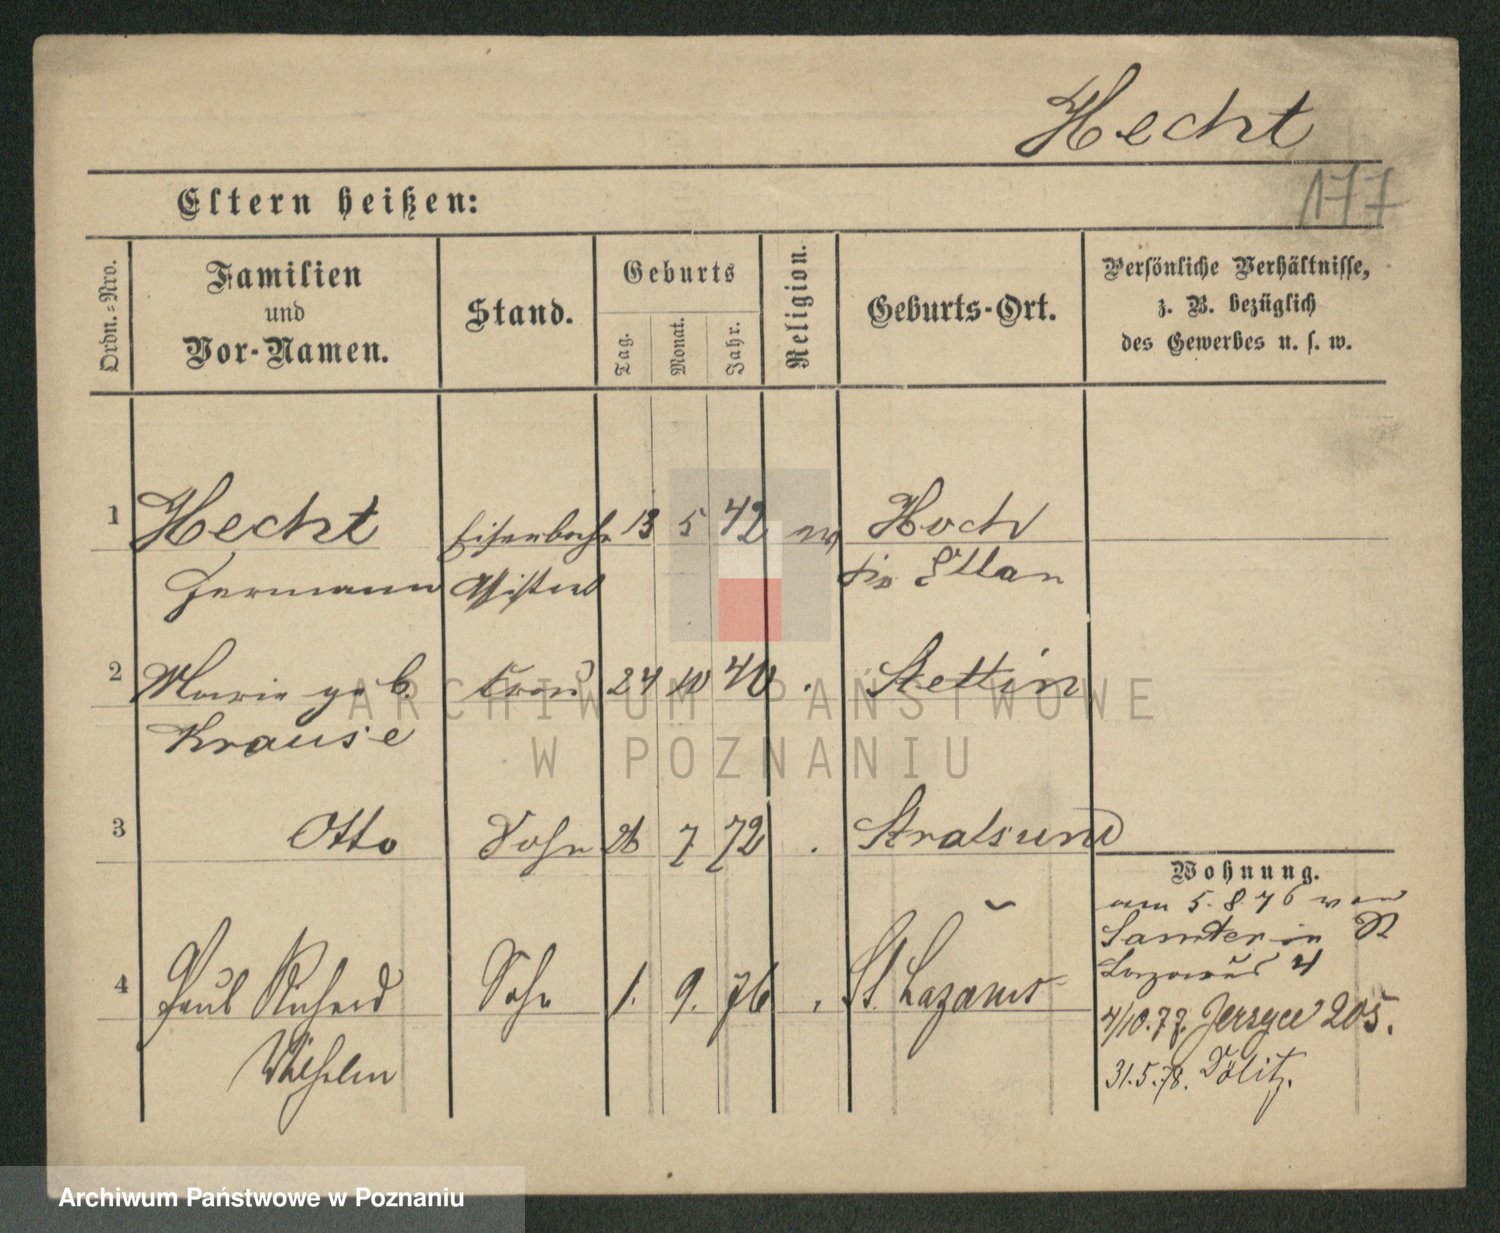 Hecht
177
Eltern heißen:
Ordn.-Nro.
Familien
und
Vor-Namen.
Stand.
Geburts
Tag.
Monat.
Jahr.
Religion.
Geburts-Ort.
Persönliche Verhältnisse,
z. B. bezüglich
des Gewerbes u. s. w.
1 Hecht Eisenbahn 13 5 42 ev Hoch
Hermann Assistent Eylau
2 Marie geb. Frau 24 10 40 . Stettin
Krause
3 Otto Sohn 26 7 72 . Stralsund
Wohnung.
am 5.8.76 von
Samter in St
Lazarus 4
4 Paul Richard Sohn 1. 9. 76 . St. Lazarus
4/10.77. Jersyce 205.
Wilhelm
31.5.78. Dölitz.
ARCHIWUM PAŃSTWOWE
W POZNANIU
Archiwum Państwowe w Poznaniu